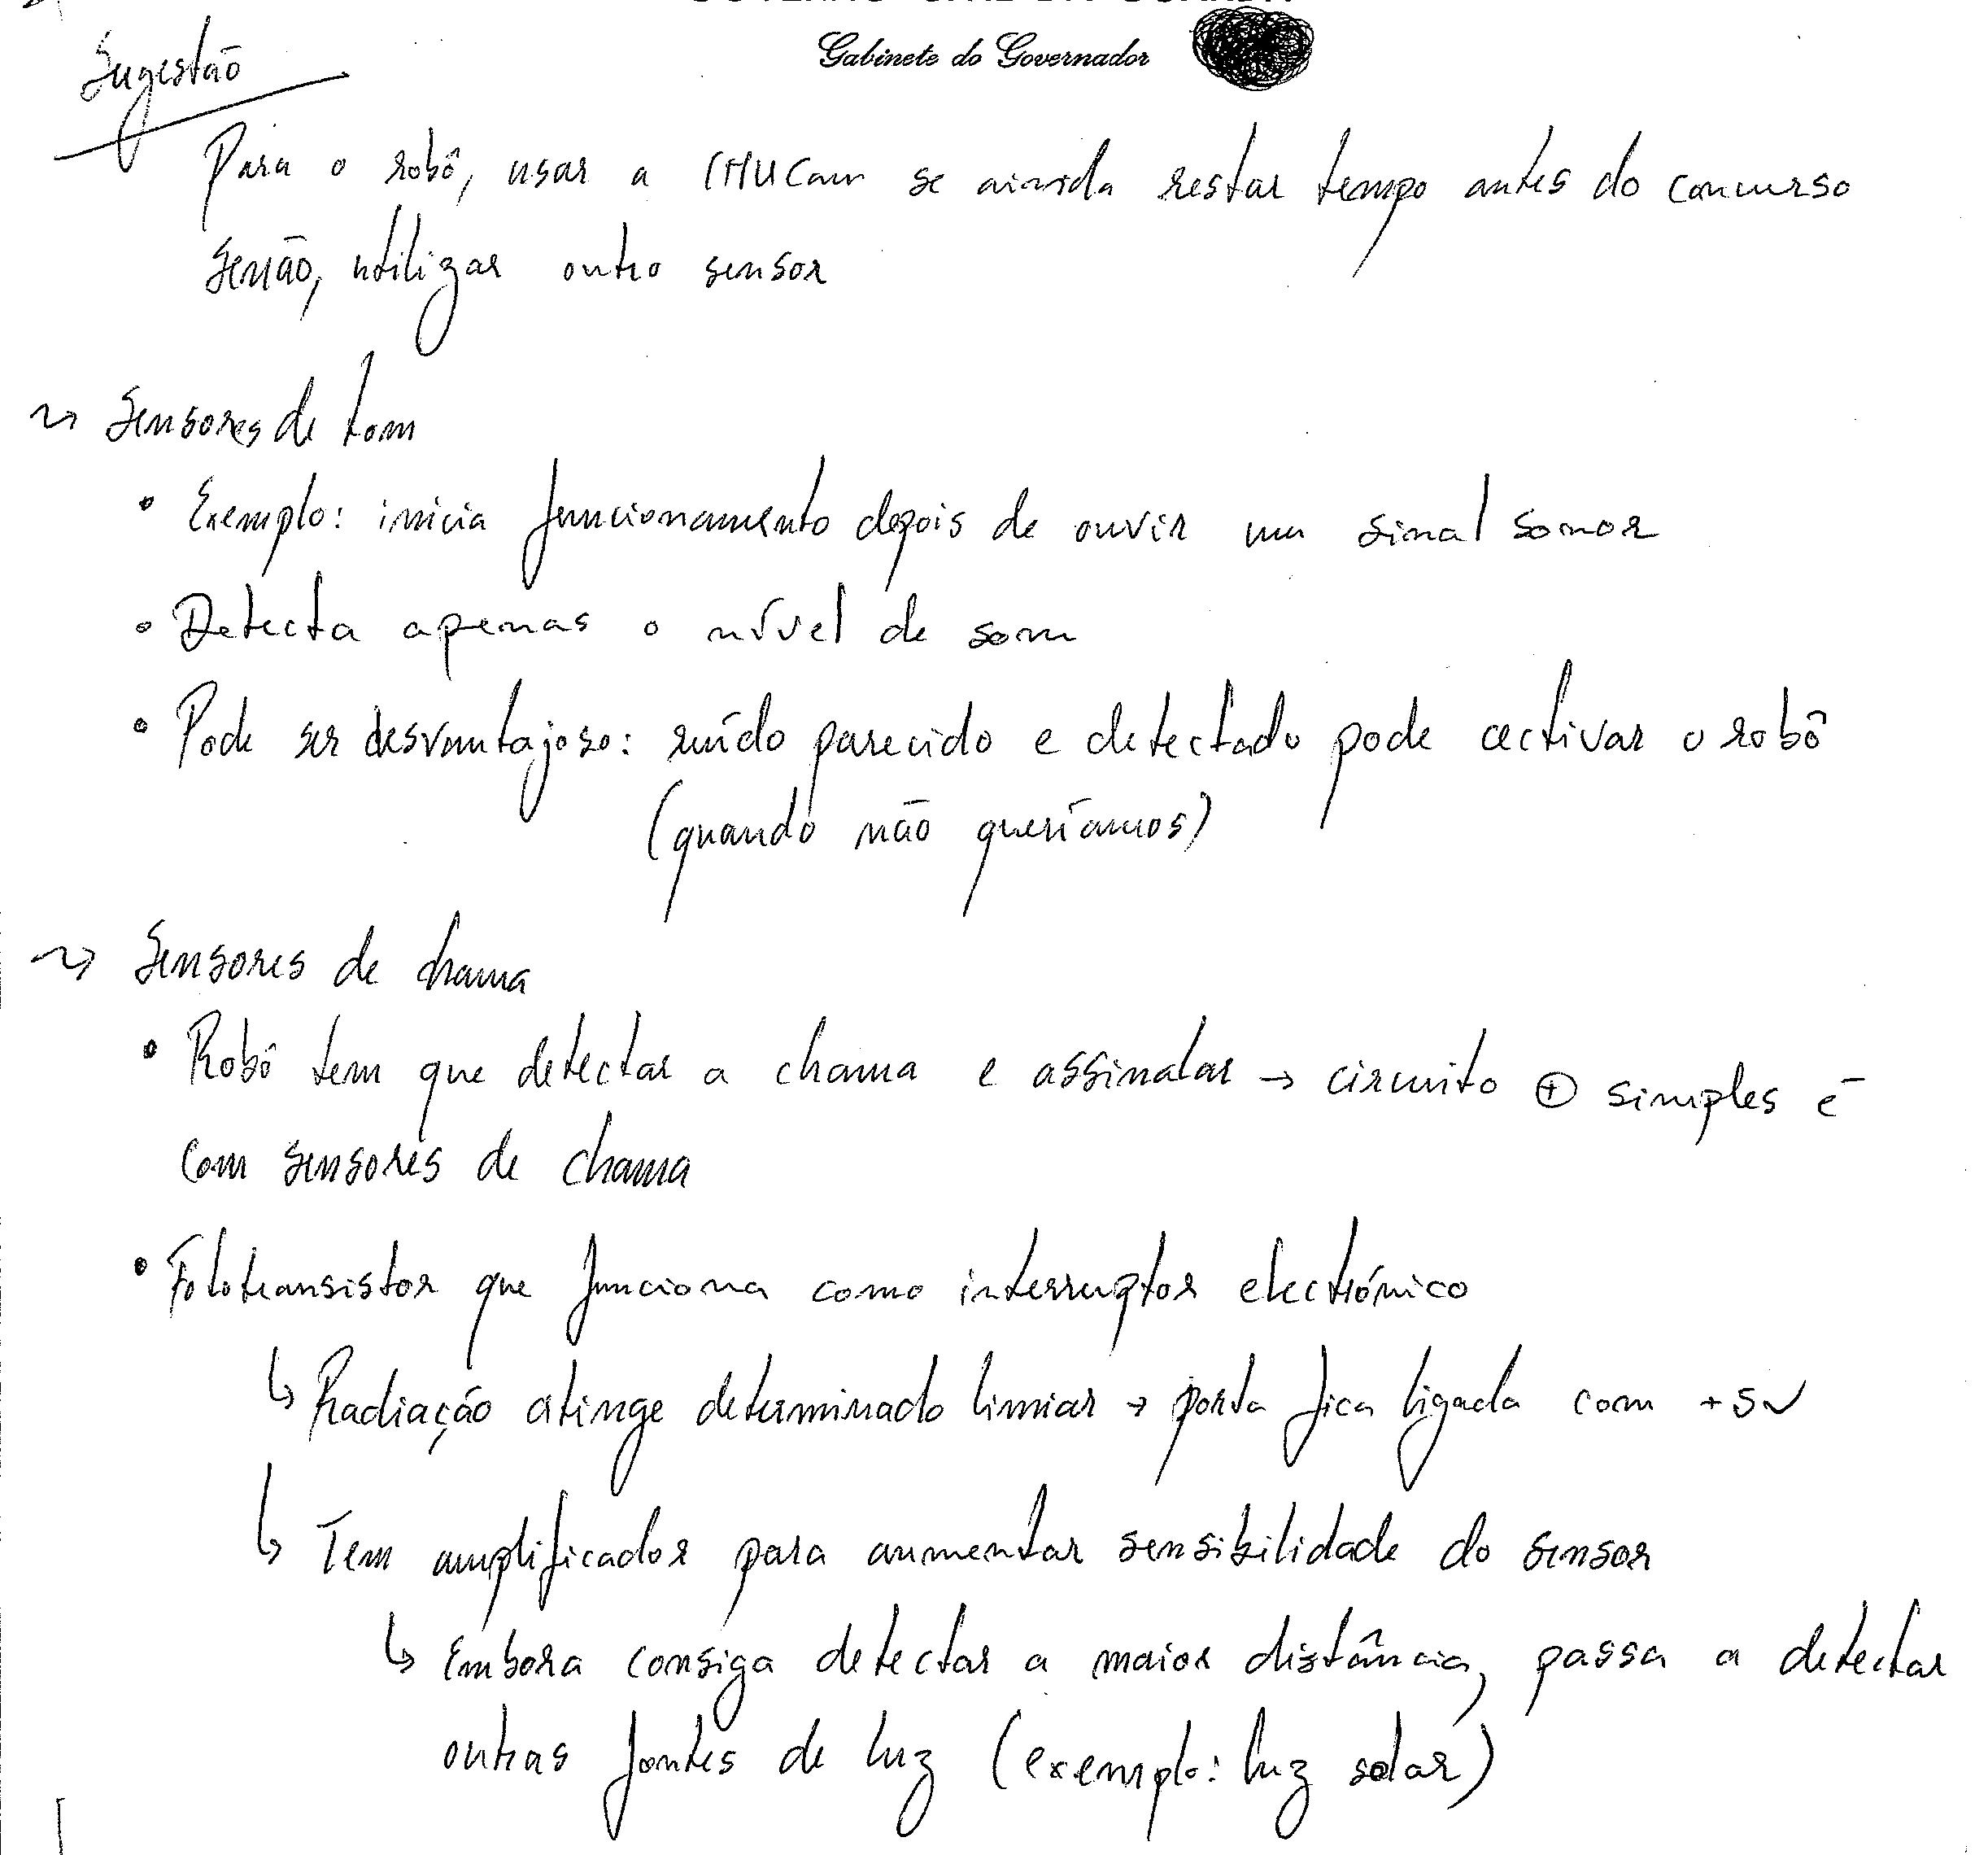 Gabinete do Governador
Sugestão
Para o robô, usar a CMUCam se ainda restar tempo antes do concurso
senão, utilizar outro sensor
↝ Sensores de tom
• Exemplo: inicia funcionamento depois de ouvir um sinal sonor
• Detecta apenas o nível de som
• Pode ser desvantajoso: ruído parecido e detectado pode activar o robô
(quando não queríamos)
↝ Sensores de chama
• Robô tem que detectar a chama e assinalar → circuito ⊕ simples é
com sensores de chama
• Fototransistor que funciona como interruptor electrónico
↳ Radiação atinge determinado limiar → porta fica ligada com +5V
↳ Tem amplificador para aumentar sensibilidade do sensor
↳ Embora consiga detectar a maior distância, passa a detectar
outras fontes de luz (exemplo: luz solar)